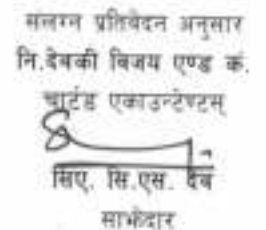 संलग्न प्रतिवेदन अनुसार
नि.देवकी बिजय एण्ड कं.
चार्टर्ड एकाउन्टेण्टस्
सिए. सि.एस. देव
साझेदार